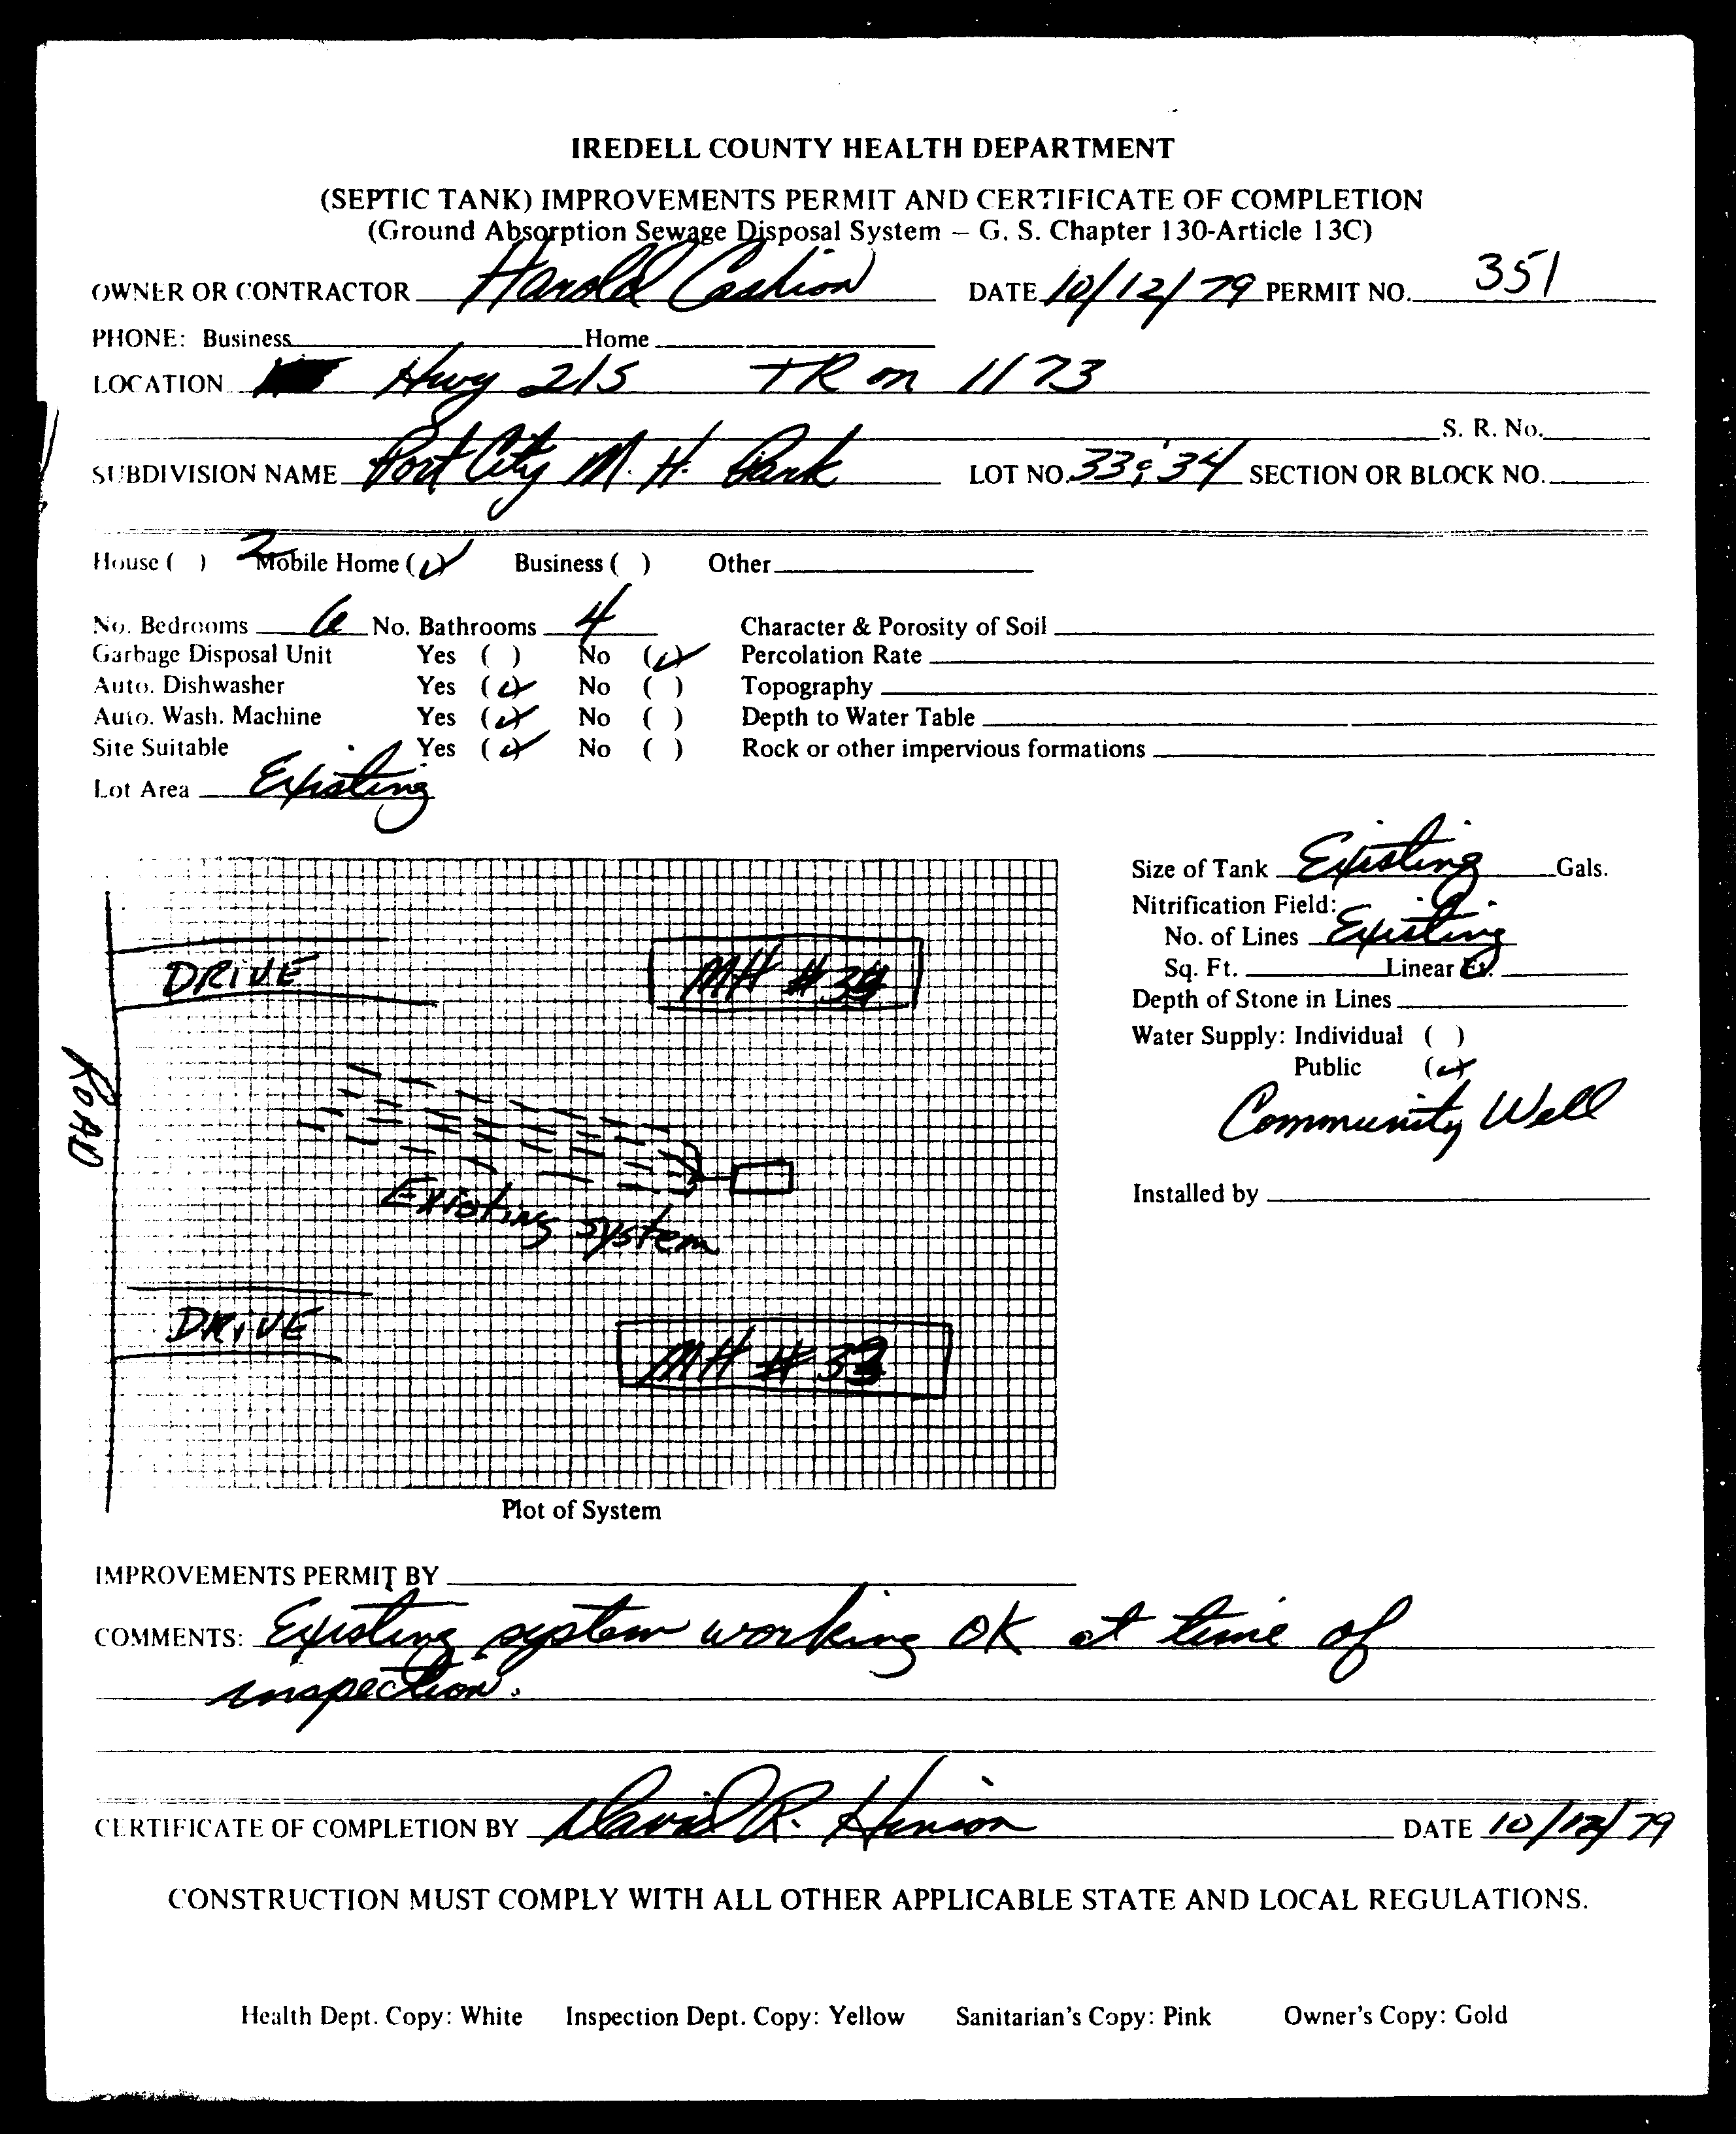 IREDELL COUNTY HEALTH DEPARTMENT
(SEPTIC TANK) IMPROVEMENTS PERMIT AND CERTIFICATE OF COMPLETION
(Ground Absorption Sewage Disposal System – G. S. Chapter 130-Article 13C)
OWNER OR CONTRACTOR Harold Cashion DATE 10/12/79 PERMIT NO. 351
PHONE: Business Home
LOCATION Hwy 215 TR on 1173
S. R. No.
SUBDIVISION NAME Port City M. H. Park LOT NO. 33 & 34 SECTION OR BLOCK NO.
House ( ) 2 Mobile Home (✓) Business ( ) Other
No. Bedrooms 6 No. Bathrooms 4 Character & Porosity of Soil
Garbage Disposal Unit Yes ( ) No (✓) Percolation Rate
Auto. Dishwasher Yes (✓) No ( ) Topography
Auto. Wash. Machine Yes (✓) No ( ) Depth to Water Table
Site Suitable Yes (✓) No ( ) Rock or other impervious formations
Lot Area Existing
Size of Tank Existing Gals.
Nitrification Field:
No. of Lines Existing
Sq. Ft. Linear Ft.
Depth of Stone in Lines
Water Supply: Individual ( )
Public (✓)
Community Well
Installed by
DRIVE MH #34
ROAD
Existing system
DRIVE
MH #33
Plot of System
IMPROVEMENTS PERMIT BY
COMMENTS: Existing system working OK at time of
inspection.
CERTIFICATE OF COMPLETION BY David R. Hinson DATE 10/12/79
CONSTRUCTION MUST COMPLY WITH ALL OTHER APPLICABLE STATE AND LOCAL REGULATIONS.
Health Dept. Copy: White Inspection Dept. Copy: Yellow Sanitarian's Copy: Pink Owner's Copy: Gold